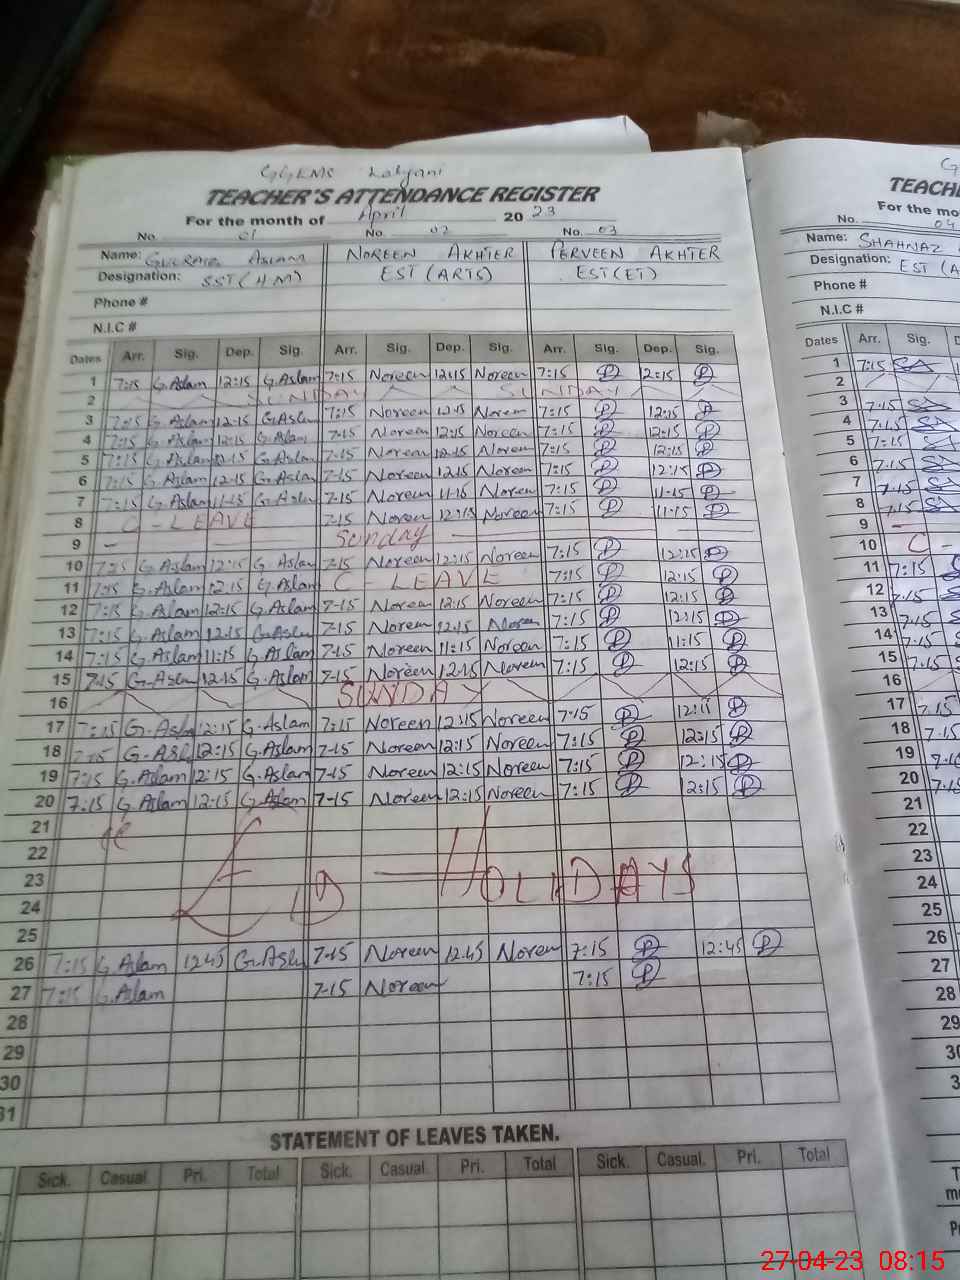 GGLMS Lalyani
TEACHER'S ATTENDANCE REGISTER
For the month of April 20 23
No. 01 No. 02 No. 03
Name: Aslam NOREEN AKHTER PERVEEN AKHTER
Designation: SST (H.M) EST (ARTS) EST (ET)
Phone #
N.I.C #
Dates Arr. Sig. Dep. Sig. Arr. Sig. Dep. Sig. Arr. Sig. Dep. Sig.
1 7:15 G.Aslam 12:15 G.Aslam 7:15 Noreen 12:15 Noreen 7:15 P 12:15 P
2 SUNDAY SUNDAY
3 7:15 G.Aslam 12:15 G.Aslam 7:15 Noreen 12:15 Noreen 7:15 P 12:15 P
4 7:15 G.Aslam 12:15 G.Aslam 7-15 Noreen 12:15 Noreen 7:15 P 12:15 P
5 7:15 G.Aslam 12:15 G.Aslam 7-15 Noreen 12:15 Noreen 7:15 P 12:15 P
6 7:15 G.Aslam 12:15 G.Aslam 7-15 Noreen 12:15 Noreen 7:15 P 12:15 P
7 7:15 G.Aslam 11:15 G.Aslam 7-15 Noreen 11-15 Noreen 7:15 P 11:15 P
8 C-LEAVE 7-15 Noreen 12:15 Noreen 7:15 P 11:15 P
9 Sunday
10 7:15 G.Aslam 12:15 G.Aslam 7-15 Noreen 12:15 Noreen 7:15 P 12:15 P
11 7:15 G.Aslam 12:15 G.Aslam C-LEAVE 7:15 P 12:15 P
12 7:15 G.Aslam 12:15 G.Aslam 7-15 Noreen 12:15 Noreen 7:15 P 12:15 P
13 7:15 G.Aslam 12:15 G.Aslam 7-15 Noreen 12:15 Noreen 7:15 P 12:15 P
14 7:15 G.Aslam 11:15 G.Aslam 7-15 Noreen 11:15 Noreen 7:15 P 11:15 P
15 7:15 G.Aslam 12:15 G.Aslam 7-15 Noreen 12:15 Noreen 7:15 P 12:15 P
16 SUNDAY
17 7:15 G.Aslam 12:15 G.Aslam 7:15 Noreen 12:15 Noreen 7:15 P 12:15 P
18 7:15 G.Asl 12:15 G.Aslam 7-15 Noreen 12:15 Noreen 7:15 P 12:15 P
19 7:15 G.Aslam 12:15 G.Aslam 7-15 Noreen 12:15 Noreen 7:15 P 12:15 P
20 7:15 G.Aslam 12:15 G.Aslam 7-15 Noreen 12:15 Noreen 7:15 P 12:15 P
21
22
23 EID - HOLIDAYS
24
25
26 7:15 G.Aslam 12:45 G.Aslam 7-15 Noreen 12:45 Noreen 7:15 P 12:45 P
27 7:15 G.Aslam 7-15 Noreen 7:15 P
28
29
30
31
STATEMENT OF LEAVES TAKEN.
Sick. Casual. Pri. Total Sick. Casual. Pri. Total Sick. Casual. Pri. Total
TEACH
For the mo
No. 04
Name: SHAHNAZ
Designation: EST (A
Phone #
N.I.C #
Dates Arr. Sig.
1 7:15
2
3 7.15
4 7.15
5 7:15
6 7.15
7 7:15
8 7:15
9
10 C -
11 7:15
12 7.15
13 7.15
14 7:15
15 7:15
16
17 7.15
18 7.15
19
20
21
22
23
24
25
26 7:15
27
28
29
30
27-04-23 08:15